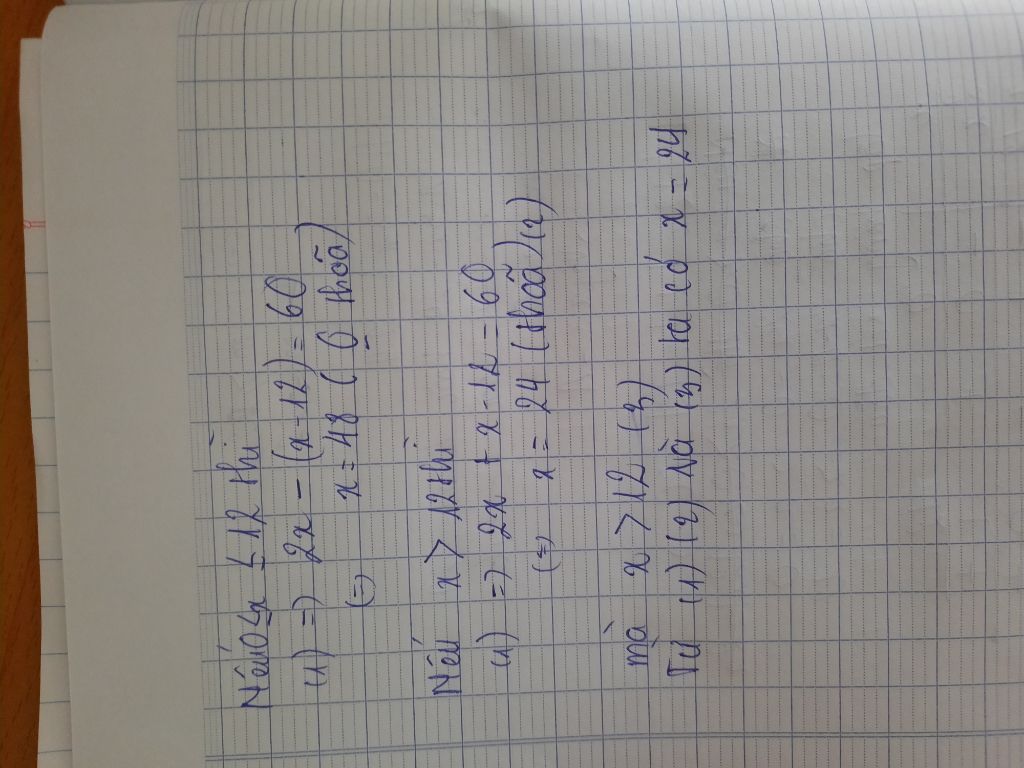 Nếu 0 ≤ x ≤ 12 thì
(1) => 2x - (x - 12) = 60
(=) x = 48 ( 0 thoã)
Nếu x > 12 thì
(1) => 2x + x - 12 = 60
(=) x = 24 (thoã) (2)
mà x > 12 (3)
Từ (1) (2) và (3) ta có x = 24